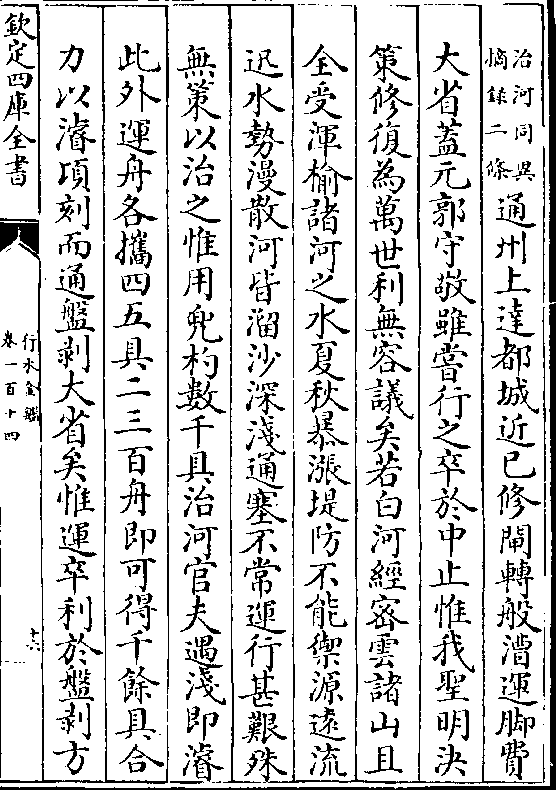 治河同異
摘錄二條
通州上達都城近已修閘轉般漕運脚費
大省蓋元郭守敬雖嘗行之卒於中止惟我聖明決
策修復為萬世利無容議矣若白河經密雲諸山且
全受渾榆諸河之水夏秋暴漲堤防不能禦源遠流
迅水勢漫散河皆溜沙深淺通塞不常運行甚艱殊
無策以治之惟用兜杓數千具治河官夫遇淺即濬
此外運舟各攜四五具二三百舟即可得千餘具合
力以濬頃刻而通盤剥大省矣惟運卒利於盤剥方
欽定四庫全書
行水金鑑
卷一百十四
十六